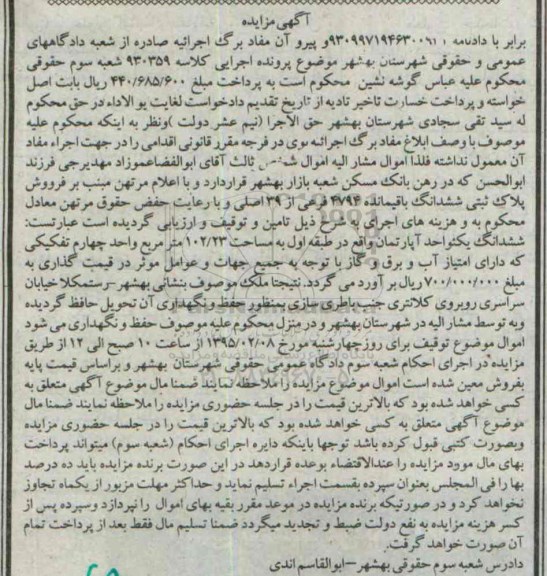 آگهی مزایده
برابر با دادنامه ۹۳۰۹۹۷۱۹۴۶۳۰۰۹۱ و پیرو آن مفاد برگ اجرائیه صادره از شعبه دادگاههای
عمومی و حقوقی شهرستان بهشهر موضوع پرونده اجرایی کلاسه ۹۳۰۳۵۹ شعبه سوم حقوقی
محکوم علیه عباس گوشه نشین محکوم است به پرداخت مبلغ ۴۴۰/۶۸۵/۶۰۰ ریال بابت اصل
خواسته و پرداخت خسارت تاخیر تادیه از تاریخ تقدیم دادخواست لغایت یو الاداء در حق محکوم
له سید تقی سجادی شهرستان بهشهر حق الاجرا (نیم عشر دولت )ونظر به اینکه محکوم علیه
موصوف با وصف ابلاغ مفاد برگ اجرائیه در فرجه مقرر قانونی اقدامی را در جهت اجراء مفاد
آن معمول نداشته فلذا اموال مشار الیه اموال شخص ثالث آقای ابوالفضا عموزاد مهدیرجی فرزند
ابوالحسن که در رهن بانک مسکن شعبه بازار بهشهر قرار دارد و با اعلام مرتهن مبنب بر فرووش
پلاک ثبتی ششدانگ باقیمانده ۴۷۹۴ فرعی از ۳۹ اصلی و با رعایت حفض حقوق مرتهن معادل
محکوم به و هزینه های اجرای به شرح ذیل تامین و توقیف و ارزیابی گردیده است عبارتست:
ششدانگ یکواحد آپارتمان واقع در طبقه اول به مساحت ۱۰۲/۲۳ متر مربع واحد چهارم تفکیکی
که دارای امتیاز آب و برق و گاز با توجه به جمیع جهات و عوامل موثر در قیمت گذاری به
مبلغ ۷۰۰/۰۰۰/۰۰۰ ریال بر آورد می گردد. نتیجتا ملک موصوف بنشانی بهشهر-رستمکلا خیابان
سراسری روبروی کلانتری جنب باطری سازی بمنظور حفظ و نگهداری آن تحویل حافظ گردیده
وبه توسط مشار الیه در شهرستان بهشهر و در منزل محکوم علیه موصوف حفظ و نگهداری می شود
اموال موضوع توقیف برای روز چهارشنبه مورخ ۱۳۹۵/۰۲/۰۸ از ساعت ۱۰ صبح الی ۱۲ از طریق
مزایده در اجرای احکام شعبه سوم دادگاه عمومی حقوقی شهرستان بهشهر و براساس قیمت پایه
بفروش معین شده است اموال موضوع مزایده را ملاحظه نمایند ضمنا مال موضوع آگهی متعلق به
کسی خواهد شده بود که بالاترین قیمت را در جلسه حضوری مزایده را ملاحظه نمایند ضمنا مال
موضوع آگهی متعلق به کسی خواهد شده بود که بالاترین قیمت را در جلسه حضوری مزایده
وبصورت کتبی قبول کرده باشد توجها باینکه دایره اجرای احکام (شعبه سوم) میتواند پرداخت
بهای مال مورد مزایده را عندالاقتضاء بوعده قرار دهد در این صورت برنده مزایده باید ده درصد
بها را فی المجلس بعنوان سپرده بقسمت اجراء تسلیم نماید و حداکثر مهلت مزبور از یکماه تجاوز
نخواهد کرد و در صورتیکه برنده مزایده در موعد مقرر بقیه بهای اموال را نپردازد وسپرده پس از
کسر هزینه مزایده به نفع دولت ضبط و تجدید میگردد ضمنا تسلیم مال فقط بعد از پرداخت تمام
آن صورت خواهد گرفت.
دادرس شعبه سوم حقوقی بهشهر –ابوالقاسم اندی